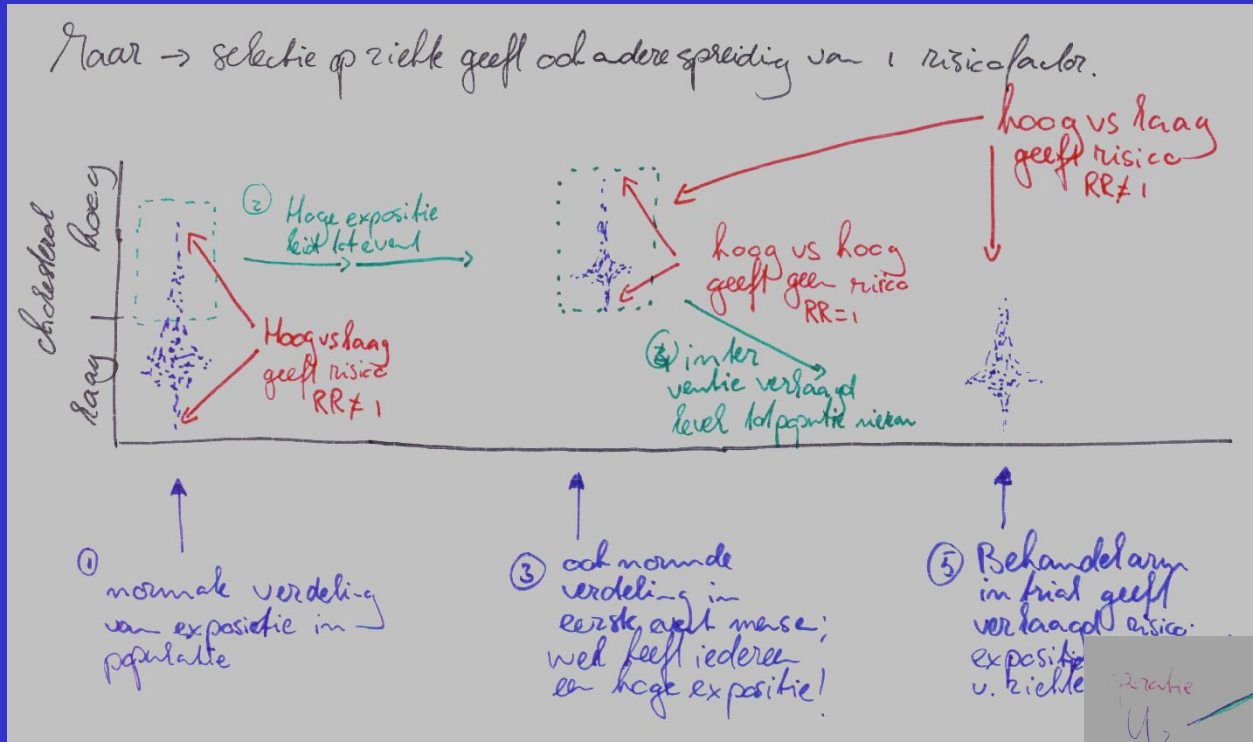 Maar → selectie op ziekte geeft ook andere spreiding van 1 risicofactor.
hoog vs laag
geeft risico
RR≠1
cholesterol
laag | hoog
② Hoge expositie
leidt tot event
hoog vs hoog
geeft geen risico
RR=1
Hoog vs laag
geeft risico
RR≠1
④ inter
ventie verlaagd
level tot populatie
① normale verdeling
van expositie in
populatie
③ ook normale
verdeling in
eerste event mensen;
wel heeft iedereen
een hoge expositie!
⑤ Behandelarm
in trial geeft
verlaagd risico
expositie
v. ziekte